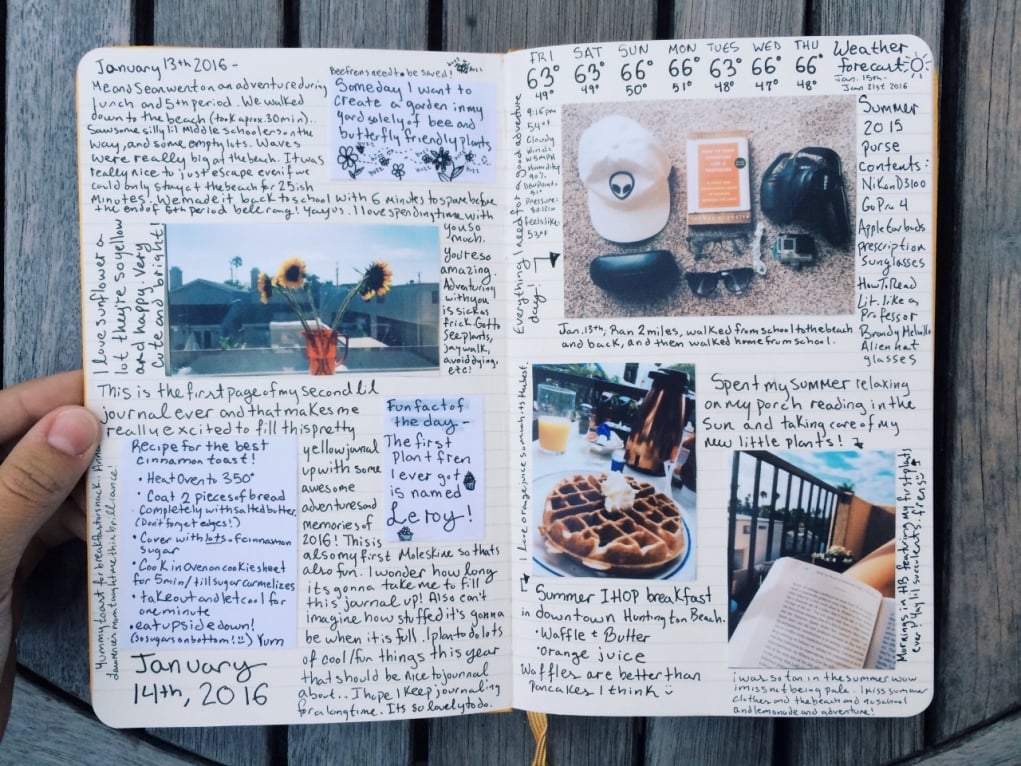 January 13th 2016 -
Me and Sean went on an adventure during
lunch and 5th period. We walked
down to the beach (took aprox. 30 min)..
Saw some silly lil middle schoolers on the
way, and some empty lots. Waves
were really big at the beach. It was
really nice to just escape even if we
could only stay at the beach for 25ish
minutes! We made it back to school with 6 minutes to spare before
the end of 6th period bell rang! Yay us. I love spending time with
you so
much.
You're so
amazing.
Adventuring
with you
is sick as
frick. Gotta
see plants,
jaywalk,
avoid dying,
etc!
Bee frens need to be saved!
Someday I want to
create a garden in my
yard solely of bee and
butterfly friendly plants
I love sunflower a
lot they're so yellow
and happy. Very
cute and bright
This is the first page of my second lil
journal ever and that makes me
really excited to fill this pretty
yellow journal
up with some
awesome
adventures and
memories of
2016! This is
also my first Moleskine so thats
also fun. I wonder how long
its gonna take me to fill
this journal up! Also can't
imagine how stuffed it's gonna
be when it is full. I plan to do lots
of cool/fun things this year
that should be nice to journal
about.. I hope I keep journaling
for a long time. Its so lovely to do.
Fun fact of
the day -
The first
plant fren
I ever got
is named
Leroy!
Yummy toast for breakfast or snack..
Recipe for the best
cinnamon toast!
• Heat Oven to 350°
• Coat 2 pieces of bread
completely with salted butter
(Don't forget edges!)
• Cover with lots of cinnamon
sugar
• Cook in oven on cookie sheet
for 5 min / till sugar carmelizes
• take out and let cool for
one minute
• eat upside down!
(So sugars on bottom! :) Yum
January
14th, 2016
FRI SAT SUN MON TUES WED THU
63° 63° 66° 66° 63° 66° 66°
49° 49° 50° 51° 48° 47° 48°
Weather
forecast
Jan. 15th -
Jan 21st 2016
9:16pm
54°F
Cloudy
Winds
Humidity
90%
Pressure:
feels like:
53°F
Everything I need for a good adventure
day!
Summer
2015
purse
contents:
Nikon D3100
GoPro 4
Apple earbuds
prescription
sunglasses
How To Read
Lit. like a
Professor
Brandy Melville
Alien hat
glasses
Jan. 13th, Ran 2 miles, walked from school to the beach
and back, and then walked home from school.
I love orange juice so much its the best.
Spent my summer relaxing
on my porch reading in the
sun and taking care of my
new little plants!
Summer IHOP breakfast
in downtown Huntington Beach.
• Waffle + Butter
• orange juice
Waffles are better than
Pancakes I think :)
Mornings in HB featuring my first plants
ever yay lil succulents. frens
i was so tan in the summer wow
i miss not being pale. I miss summer
clothes and the beach and no school
and lemonade and adventure!